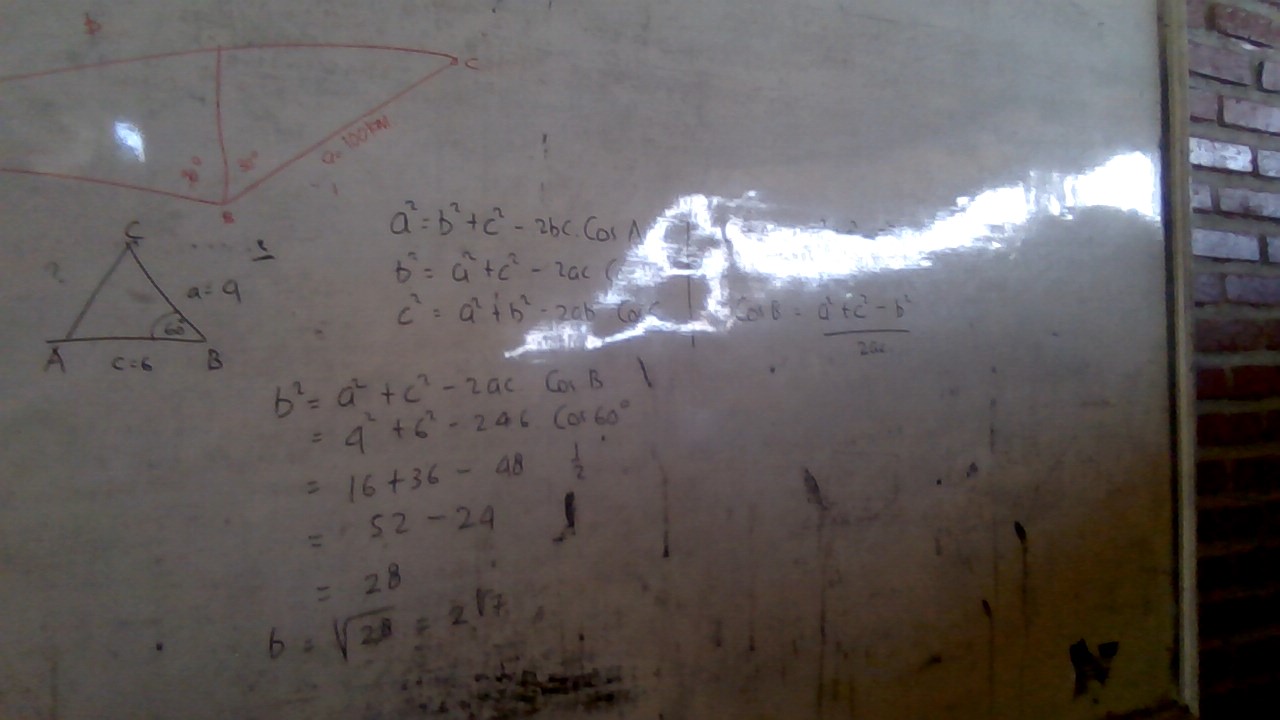 b
C
a = 100 km
B
C
?
a = 4
60°
A
c = 6
B
a² = b² + c² - 2bc. Cos A
b² = a² + c² - 2ac
c² = a² + b² - 2ab Cos C
Cos B = a² + c² - b² / 2ac
b² = a² + c² - 2ac Cos B
= 4² + 6² - 2 4 6 Cos 60°
= 16 + 36 - 48 1/2
= 52 - 24
= 28
b = √28 = 2√7